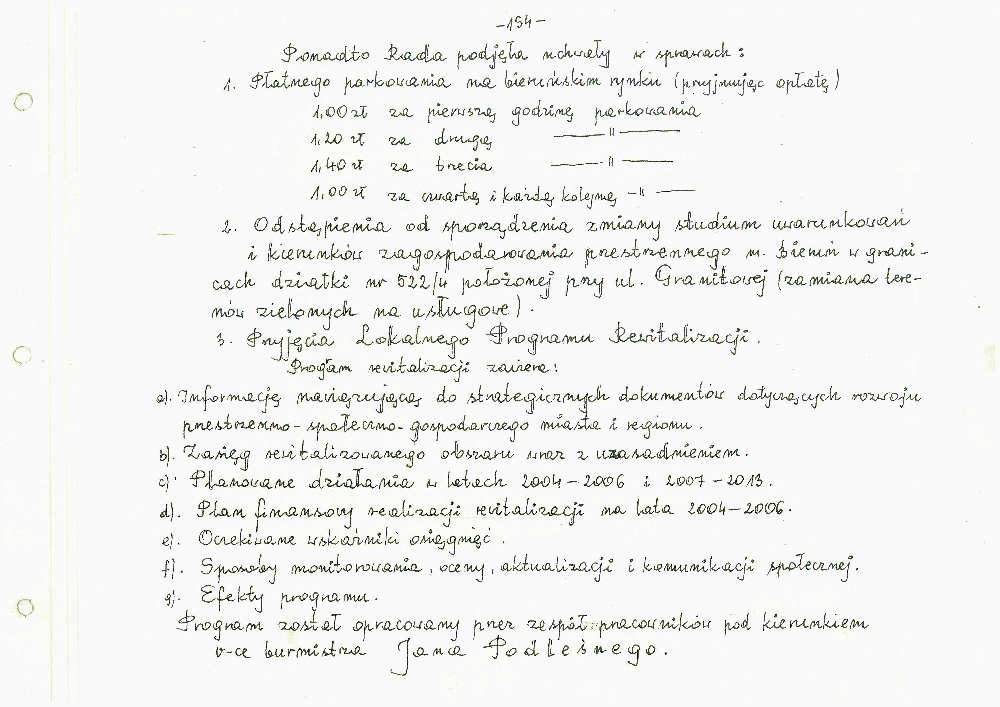 -154-
Ponadto Rada podjęła uchwały w sprawach:
1. Płatnego parkowania na bieruńskim rynku (przyjmując opłatę)
1,00 zł za pierwszą godzinę parkowania
1,20 zł za drugą —"—
1,40 zł za trzecią —"—
1,00 zł za czwartą i każdą kolejną —"—
2. Odstąpienia od sporządzenia zmiany studium uwarunkowań
i kierunków zagospodarowania przestrzennego m. Bieruń w grani-
cach działki nr 522/4 położonej przy ul. Granitowej (zamiana tere-
nów zielonych na usługowe).
3. Przyjęcia Lokalnego Programu Rewitalizacji.
Program rewitalizacji zawiera:
a). Informację nawiązującą do strategicznych dokumentów dotyczących rozwoju
przestrzenno-społeczno-gospodarczego miasta i regionu.
b). Zasięg rewitalizowanego obszaru wraz z uzasadnieniem.
c). Planowane działania w latach 2004-2006 i 2007-2013.
d). Plan finansowy realizacji rewitalizacji na lata 2004-2006.
e). Oczekiwane wskaźniki osiągnięć.
f). Sposoby monitorowania, oceny, aktualizacji i komunikacji społecznej.
g). Efekty programu.
Program został opracowany przez zespół pracowników pod kierunkiem
v-ce burmistrza Jana Podleśnego.